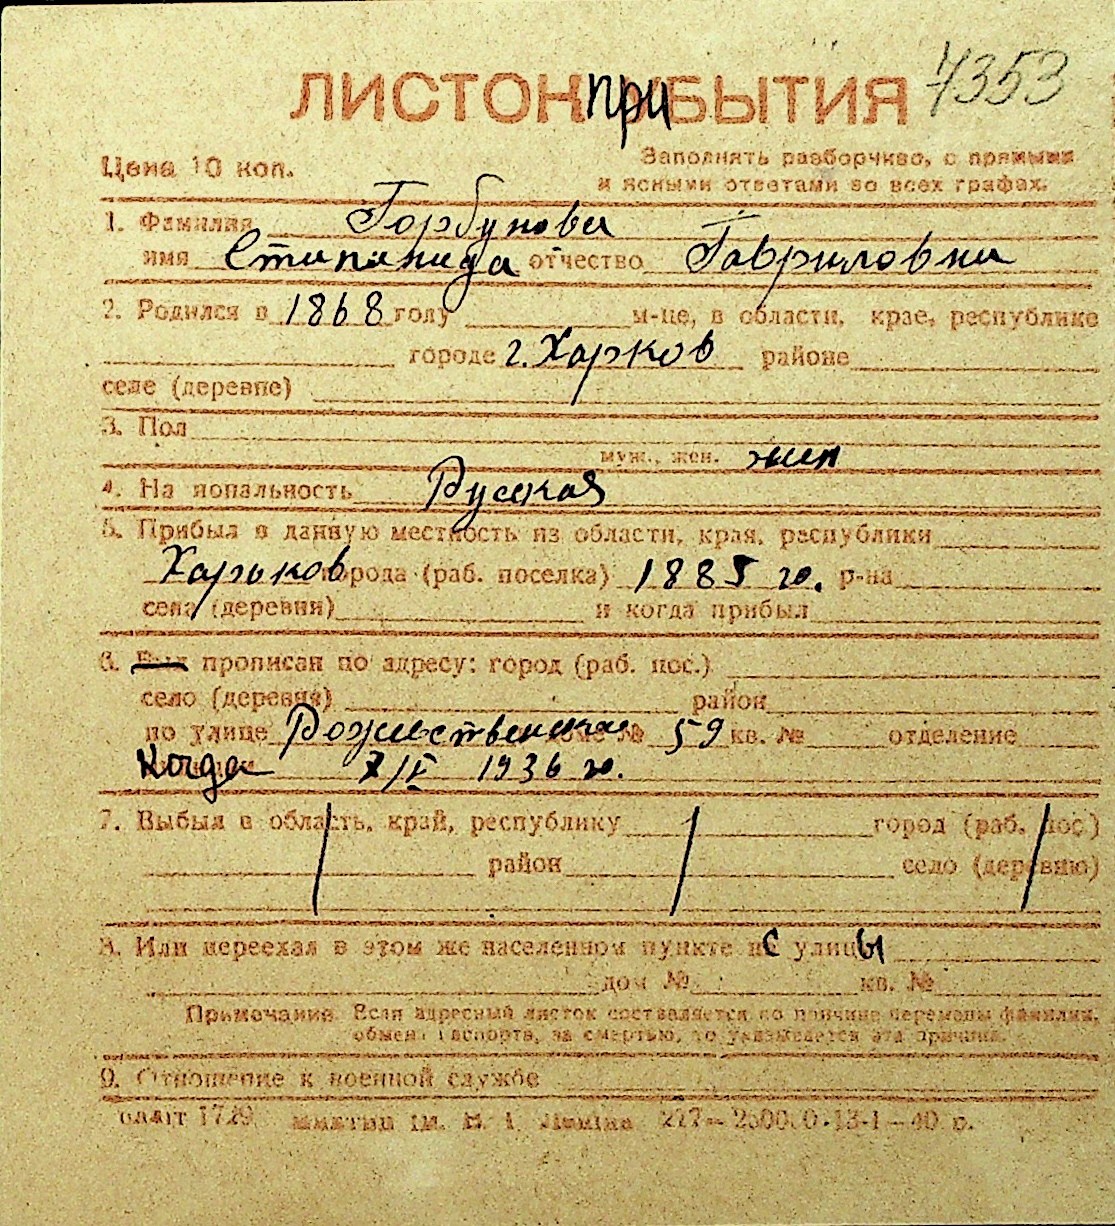 ЛИСТОК ПРИБЫТИЯ 7353
Цена 10 коп. Заполнять разборчиво, с прямыми
и ясными ответами во всех графах.
1. Фамилия Горбунова
имя Стипанида отчество Гавриловна
2. Родился в 1868 году м-це, в области, крае, республике
городе г. Харков районе
селе (деревне)
3. Пол
муж., жен. жен
4. На иональность Русская
5. Прибыл в данную местность из области, края, республики
Харьков города (раб. поселка) 1885 го. р-на
села (деревни) и когда прибыл
6. Был прописан по адресу: город (раб. пос.)
село (деревня) район
по улице Рождественская № 59 кв. № отделение
Когда 7/IV 1936 го.
7. Выбыл в область, край, республику город (раб. пос)
район село (деревню)
8. Или переехал в этом же населенном пункте с улицы
дом № кв. №
Примечание. Если адресный листок составляется по причине перемены фамилии,
обмена паспорта, за смертью, то указывается эта причина.
9. Отношение к военной службе
1729. им. В. І. Леніна 227—2500.0-13-1—40 р.